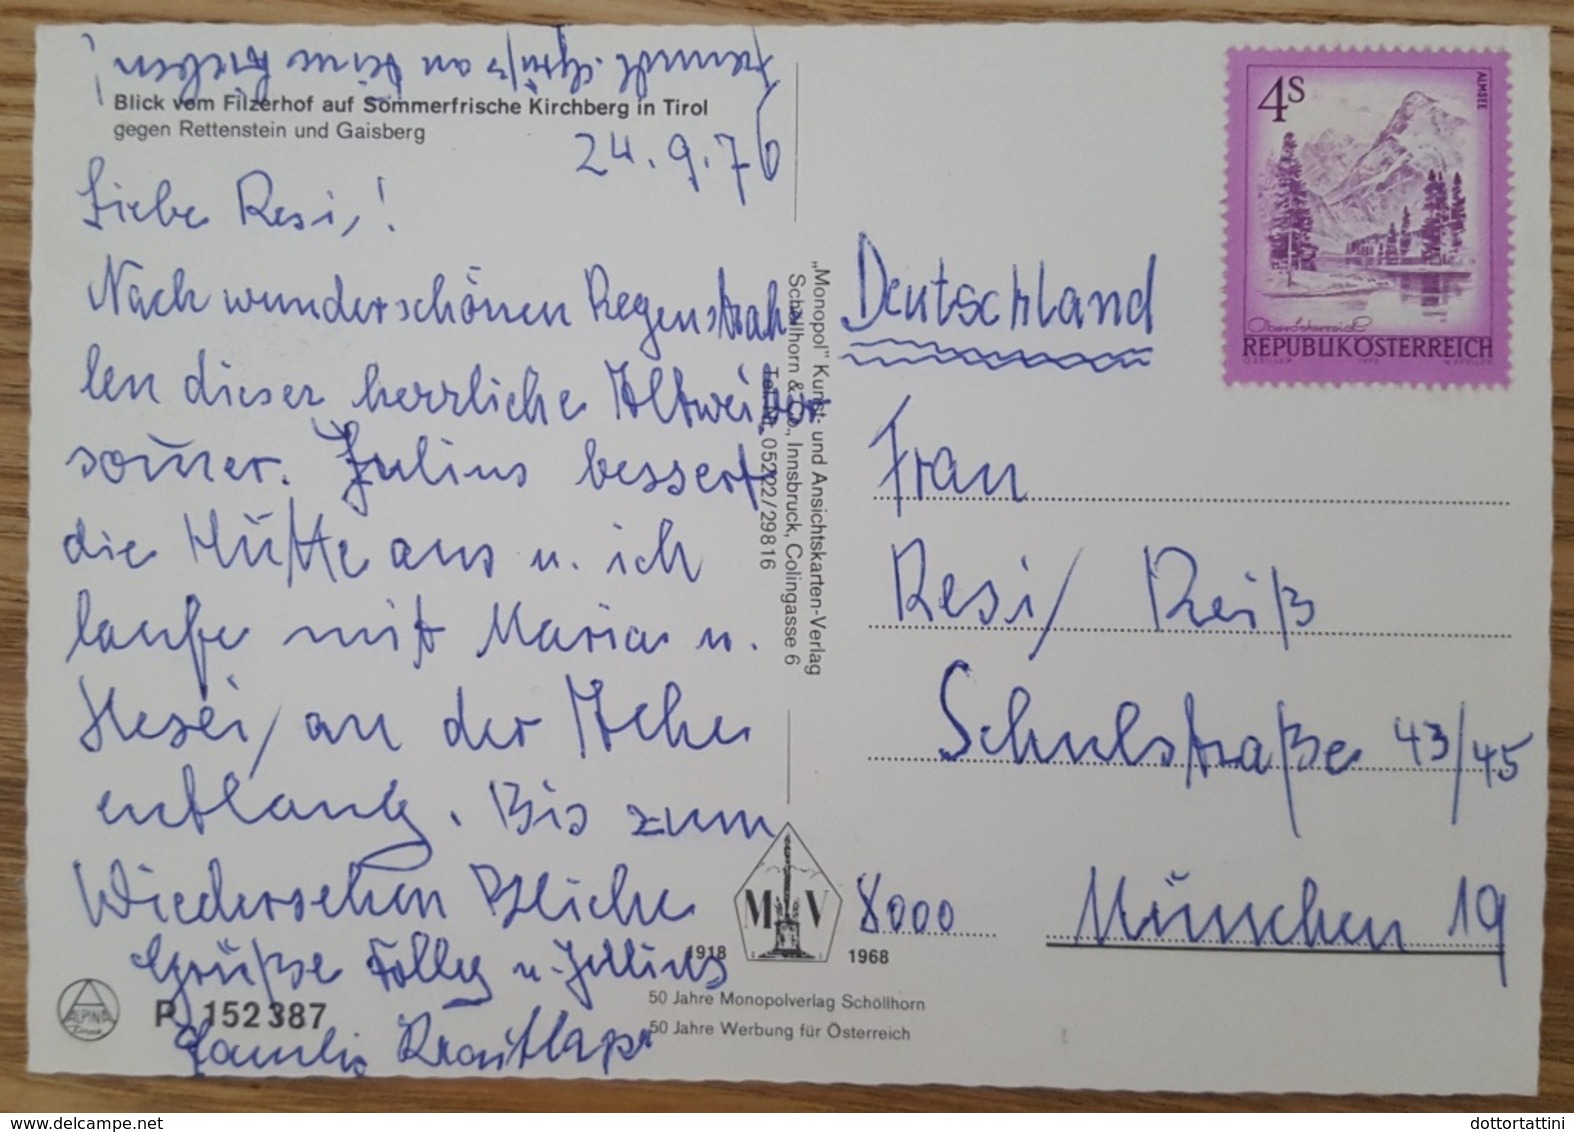 freundl. Grüß an Deine Lieben!
Blick vom Filzerhof auf Sommerfrische Kirchberg in Tirol
gegen Rettenstein und Gaisberg
24.9.76
Liebe Resi,!
Nach wunderschönen Regenstrah
len dieser herrliche Altweiber
som̄er. Julius bessert
die Hütte aus u. ich
laufe mit Maria u.
an der Ache
entlang. Bis zum
Wiedersehen
Grüße u. Julius
Familie
"Monopol" Kunst- und Ansichtskarten-Verlag
Schöllhorn & Co., Innsbruck, Colingasse 6
Tel. Nr. 05222/29816
MV
1918 1968
50 Jahre Monopolverlag Schöllhorn
50 Jahre Werbung für Österreich
ALPINA
P 152387
4S
ALMSEE
Oberösterreich
REPUBLIK ÖSTERREICH
Deutschland
Frau
Resi/ Reiß
Schulstraße 43/45
8000 München 19
dottortattini